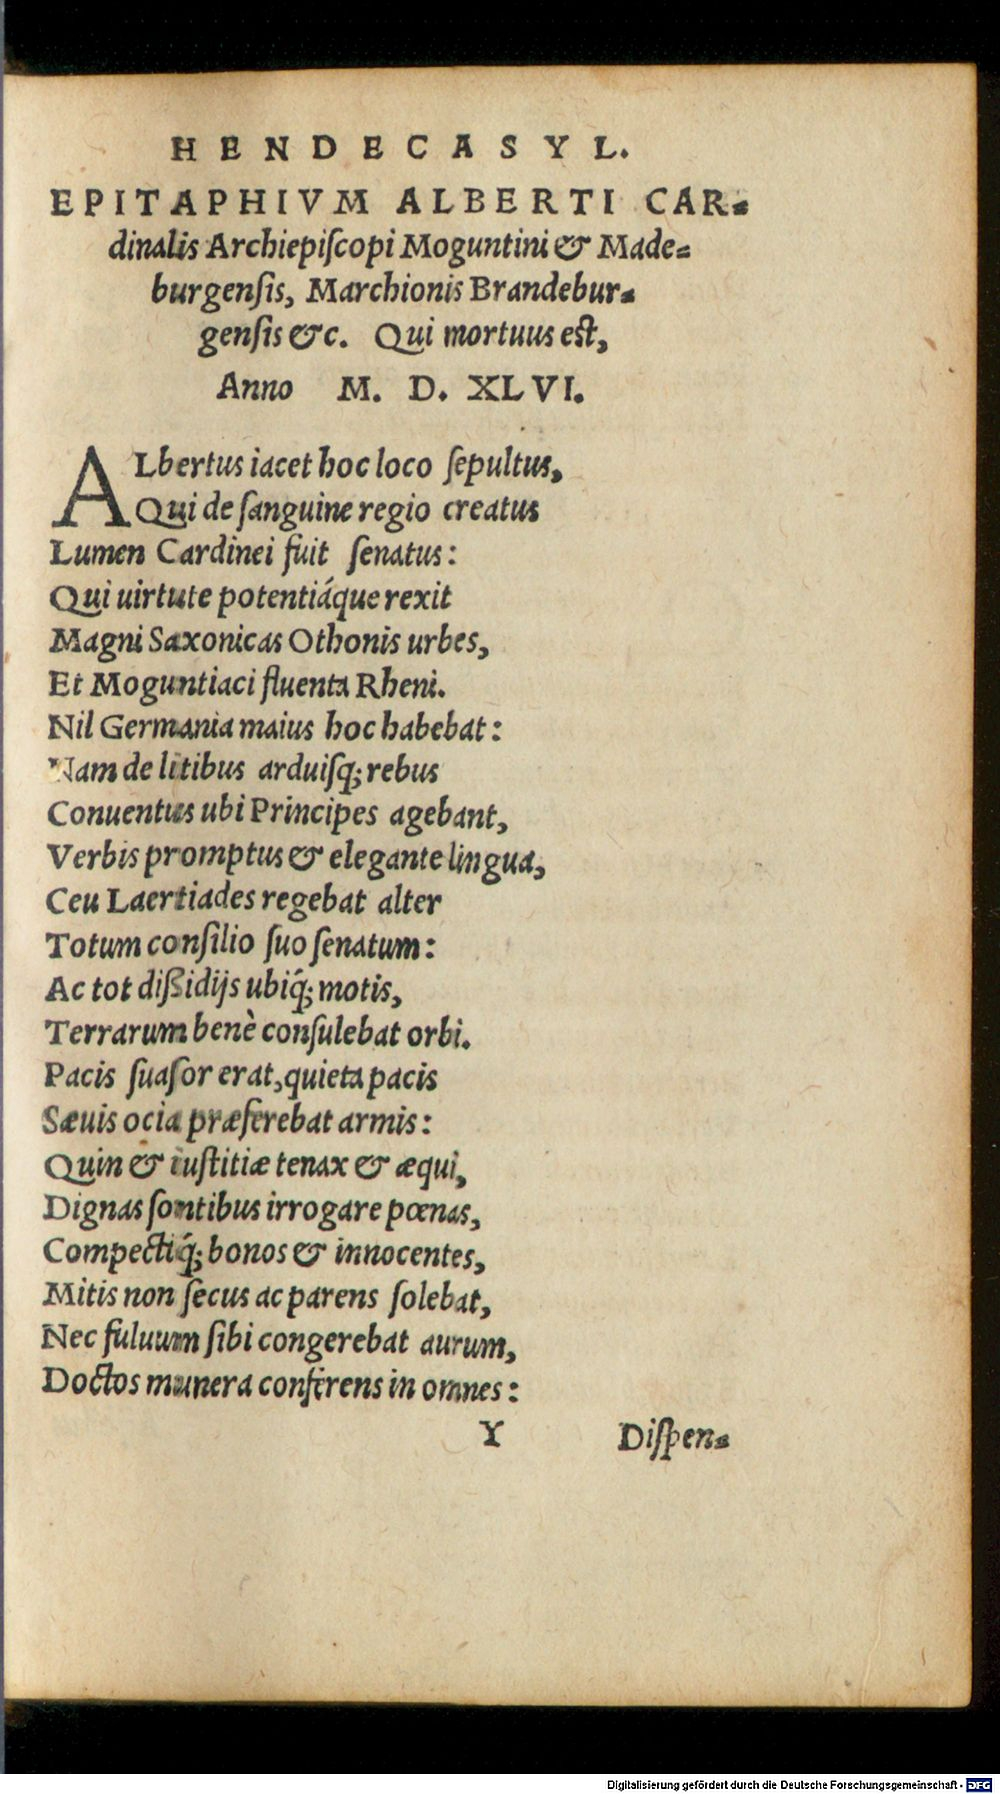 HENDECASYL.
EPITAPHIVM ALBERTI CAR-
dinalis Archiepiſcopi Moguntini & Made-
burgenſis, Marchionis Brandebur-
genſis &c. Qui mortuus eſt,
Anno M. D. XLVI.
ALbertus iacet hoc loco ſepultus,
Qui de ſanguine regio creatus
Lumen Cardinei fuit ſenatus:
Qui uirtute potentiáque rexit
Magni Saxonicas Othonis urbes,
Et Moguntiaci fluenta Rheni.
Nil Germania maius hoc habebat:
Nam de litibus arduiſq; rebus
Conuentus ubi Principes agebant,
Verbis promptus & elegante lingua,
Ceu Laertiades regebat alter
Totum conſilio ſuo ſenatum:
Ac tot dißidijs ubiq́; motis,
Terrarum benè conſulebat orbi.
Pacis ſuaſor erat, quieta pacis
Sæuis ocia præferebat armis:
Quin & iuſtitiæ tenax & æqui,
Dignas ſontibus irrogare pœnas,
Compectiq́; bonos & innocentes,
Mitis non ſecus ac parens ſolebat,
Nec fuluum ſibi congerebat aurum,
Doctos munera conferens in omnes:
Y Diſpen-
Digitalisierung gefördert durch die Deutsche Forschungsgemeinschaft - DFG